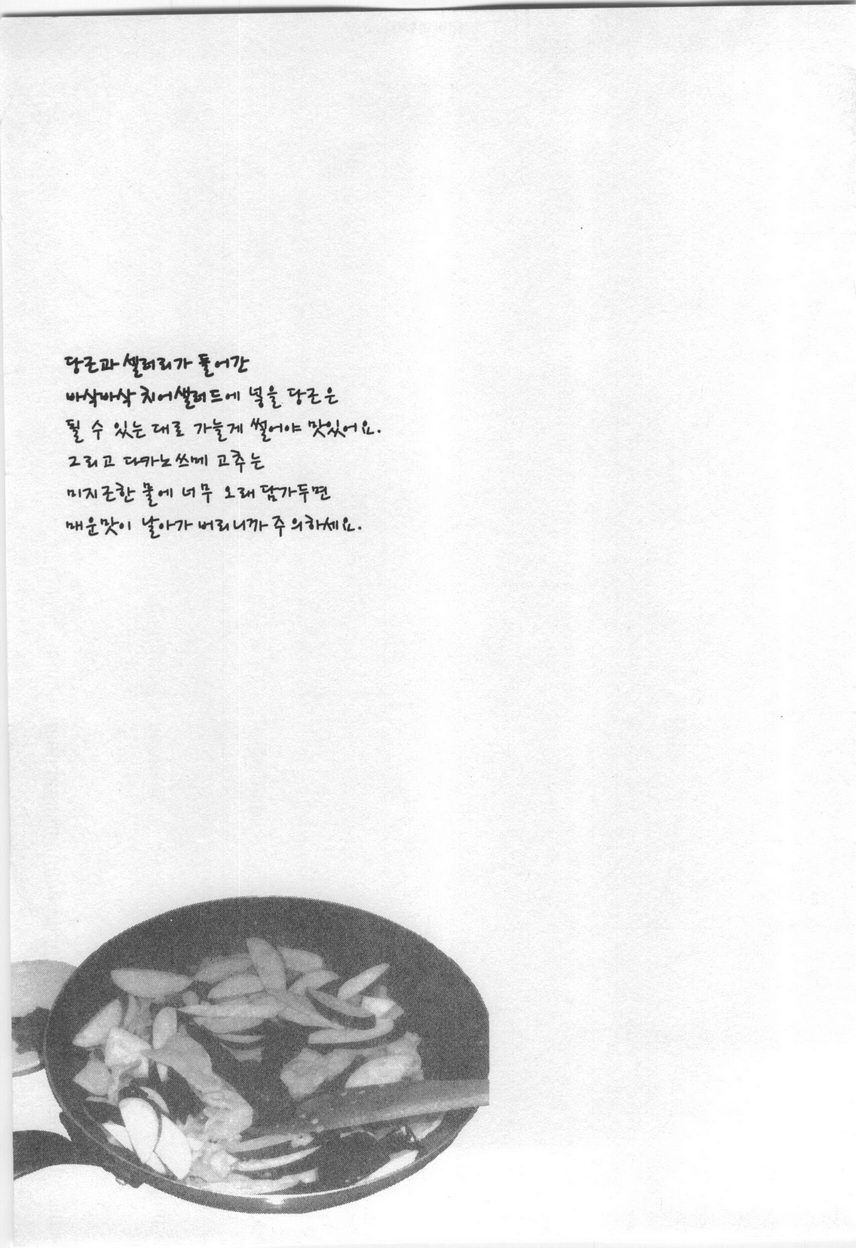 당근과 샐러리가 들어간
바삭바삭 치어샐러드에 넣을 당근은
될 수 있는 대로 가늘게 썰어야 맛있어요.
그리고 다카노쓰메 고추는
미지근한 물에 너무 오래 담가두면
매운맛이 날아가 버리니까 주의하세요.